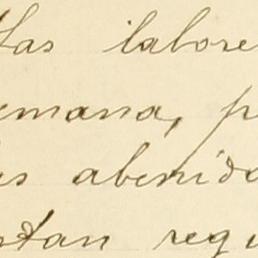 Las labore
emana, p
as abenida
stan requ